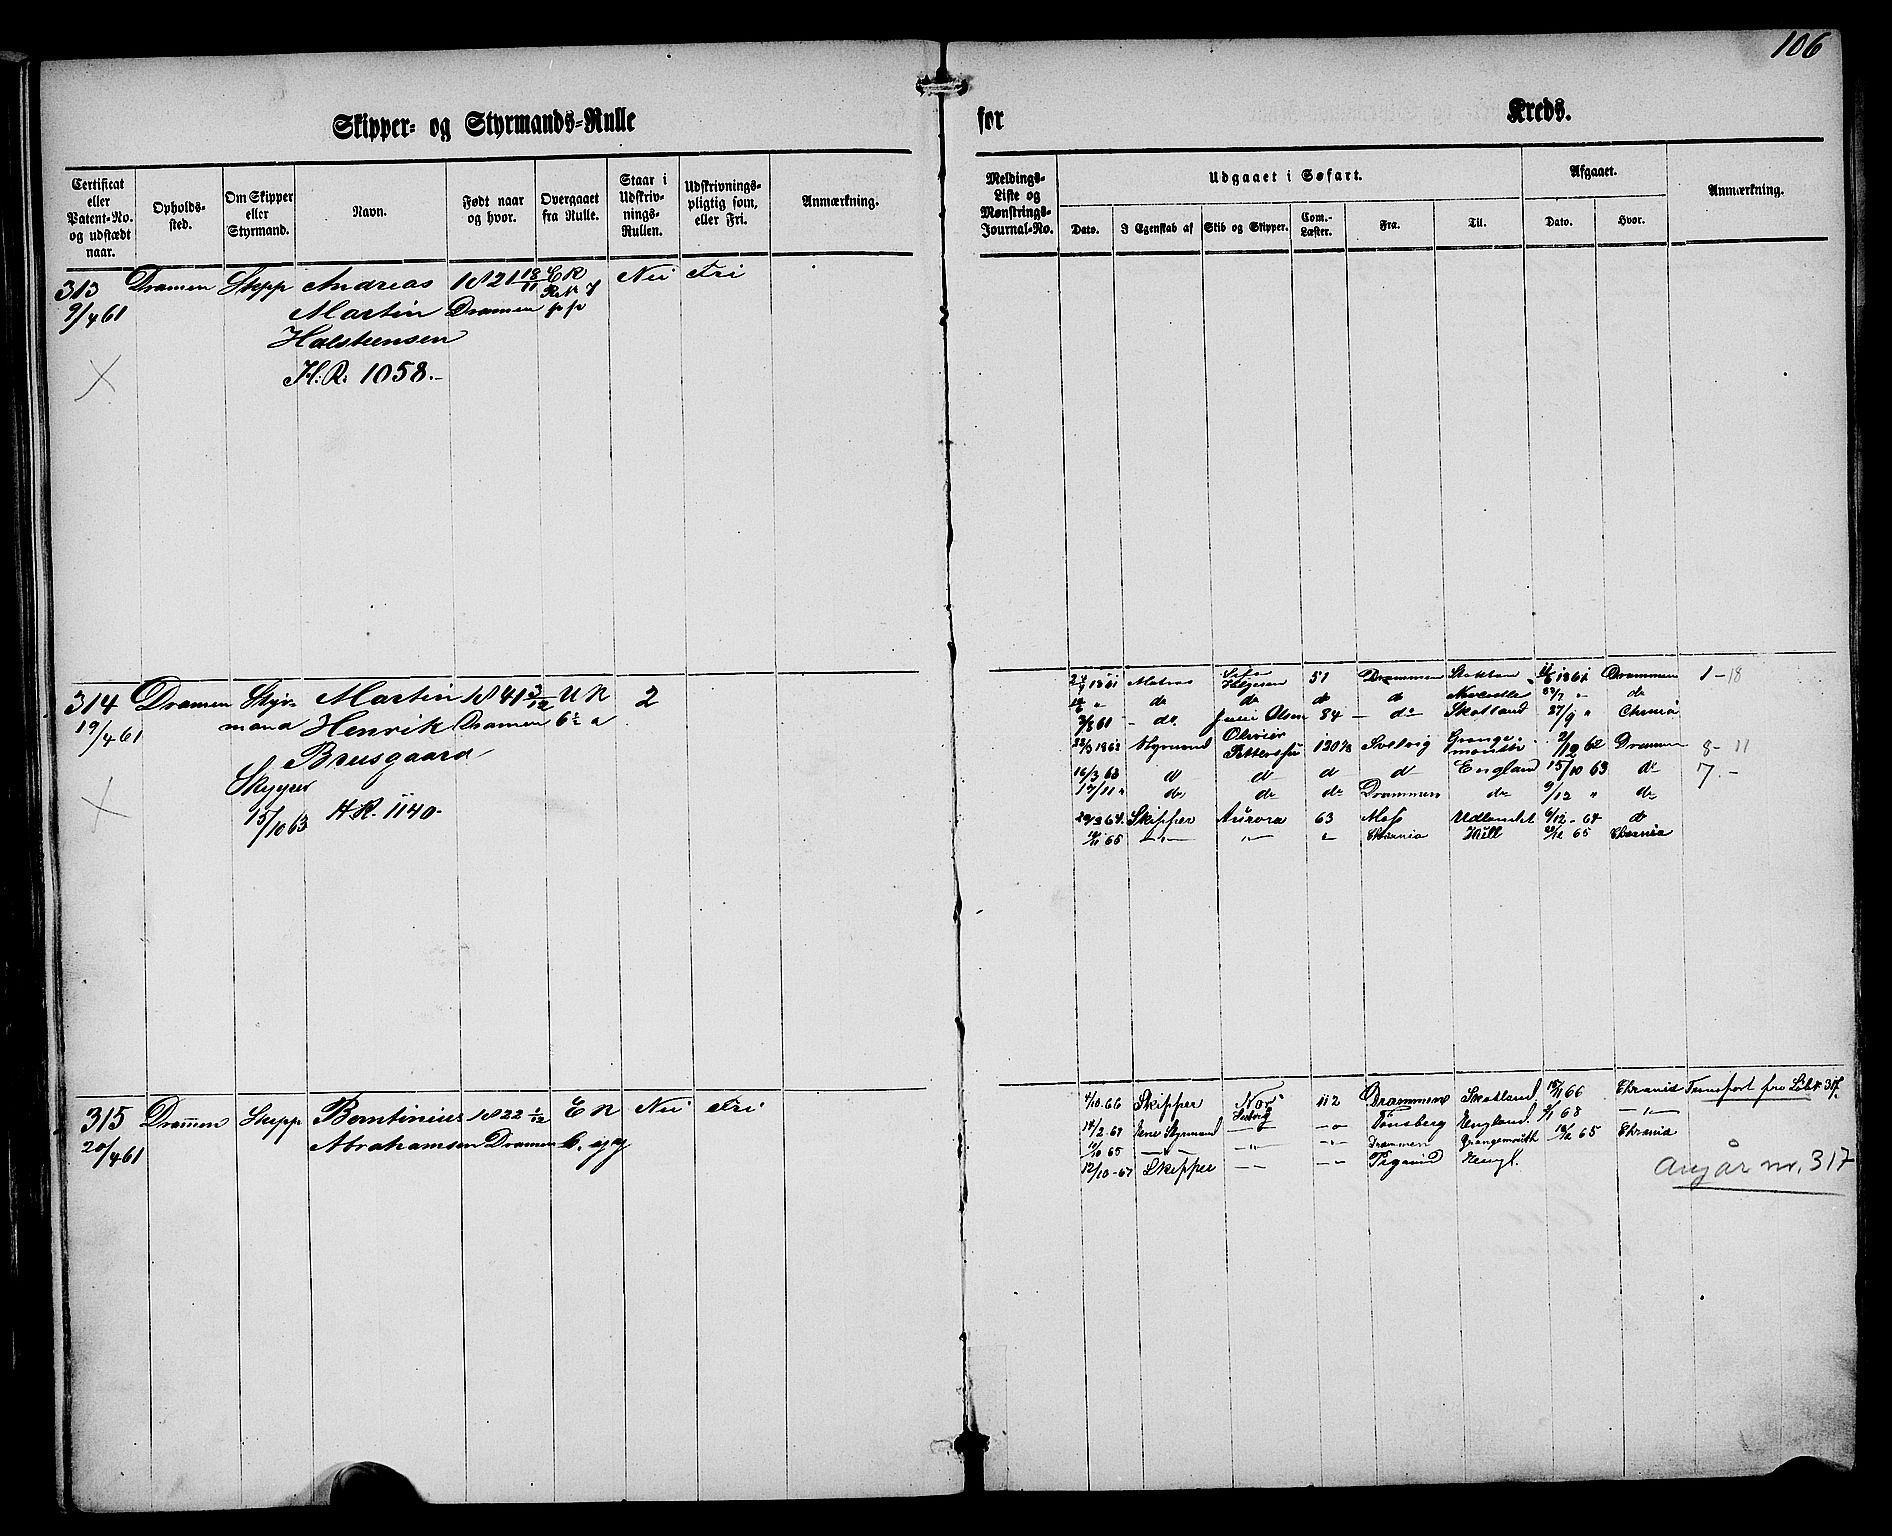 106
Skipper- og Styrmands-Rulle for Kreds.
Certificat eller Patent-No. og udstædt naar.
Opholds-sted.
Om Skipper eller Styrmand.
Navn.
Født naar og hvor.
Overgaaet fra Rulle.
Staar i Udskriv-nings-Rullen.
Udskrivnings-pligtig som, eller Fri.
Anmærkning.
Meldings-Liste og Mønstrings-Journal-No.
Udgaaet i Søfart.
Dato.
I Egenskab af
Skib og Skipper.
Com.-Læster.
Fra.
Til.
Afgaaet.
Dato.
Hvor.
Anmærkning.
313 Dramen Skipp Andreas 1821 18/11 Nei Fri
9/4 61 Martin Dramen
Halstensen
H: R: 1058.-
314 Dramen Styr- Martin 1841 3/12 U R 2
19/4 61 mand Henrik Dramen 6 1/2 a
Brusgaard
Skipper
15/10 63 H R. 1140-
1861 Matros Helgesen 51 Drammen Stokton 1861 Drammen 1-18
" do do do do Newcastle " do
2/8 61 - do. Julie Olsen 84 - do Skotland 27/9 " Chrania
22/3 1862 Styrmand Olivier Pettersen 120 1/2 Svelvig Grange-mouth 2/12 62 Drammen 8-11
16/3 63 d d d d England 15/10 63 do 7.-
17/11 " do do do Drammen do 9/12 " do
29/3 64. Skipper Aurora 63 Moss Udlandet 6/12-64 d
65 -"- "- " Chrania Hull 65 Chrania
315 Dramen Skipp Berntinius 1822 1/12 E R Nei Fri
20/4 61 Abrahamsen Dramen
4/10 66 Skipper Nor 112 Drammen Skotland 66 Chrania Transport fra Lib. № 317.
14/2 67 Ene Styrmand -"- Tønsberg England. 68 -"-
65 -"- -"- -"- Drammen Grangemouth 65 Chrania
12/10-67 Skipper -"- -"- Engl.
Angår nr. 317